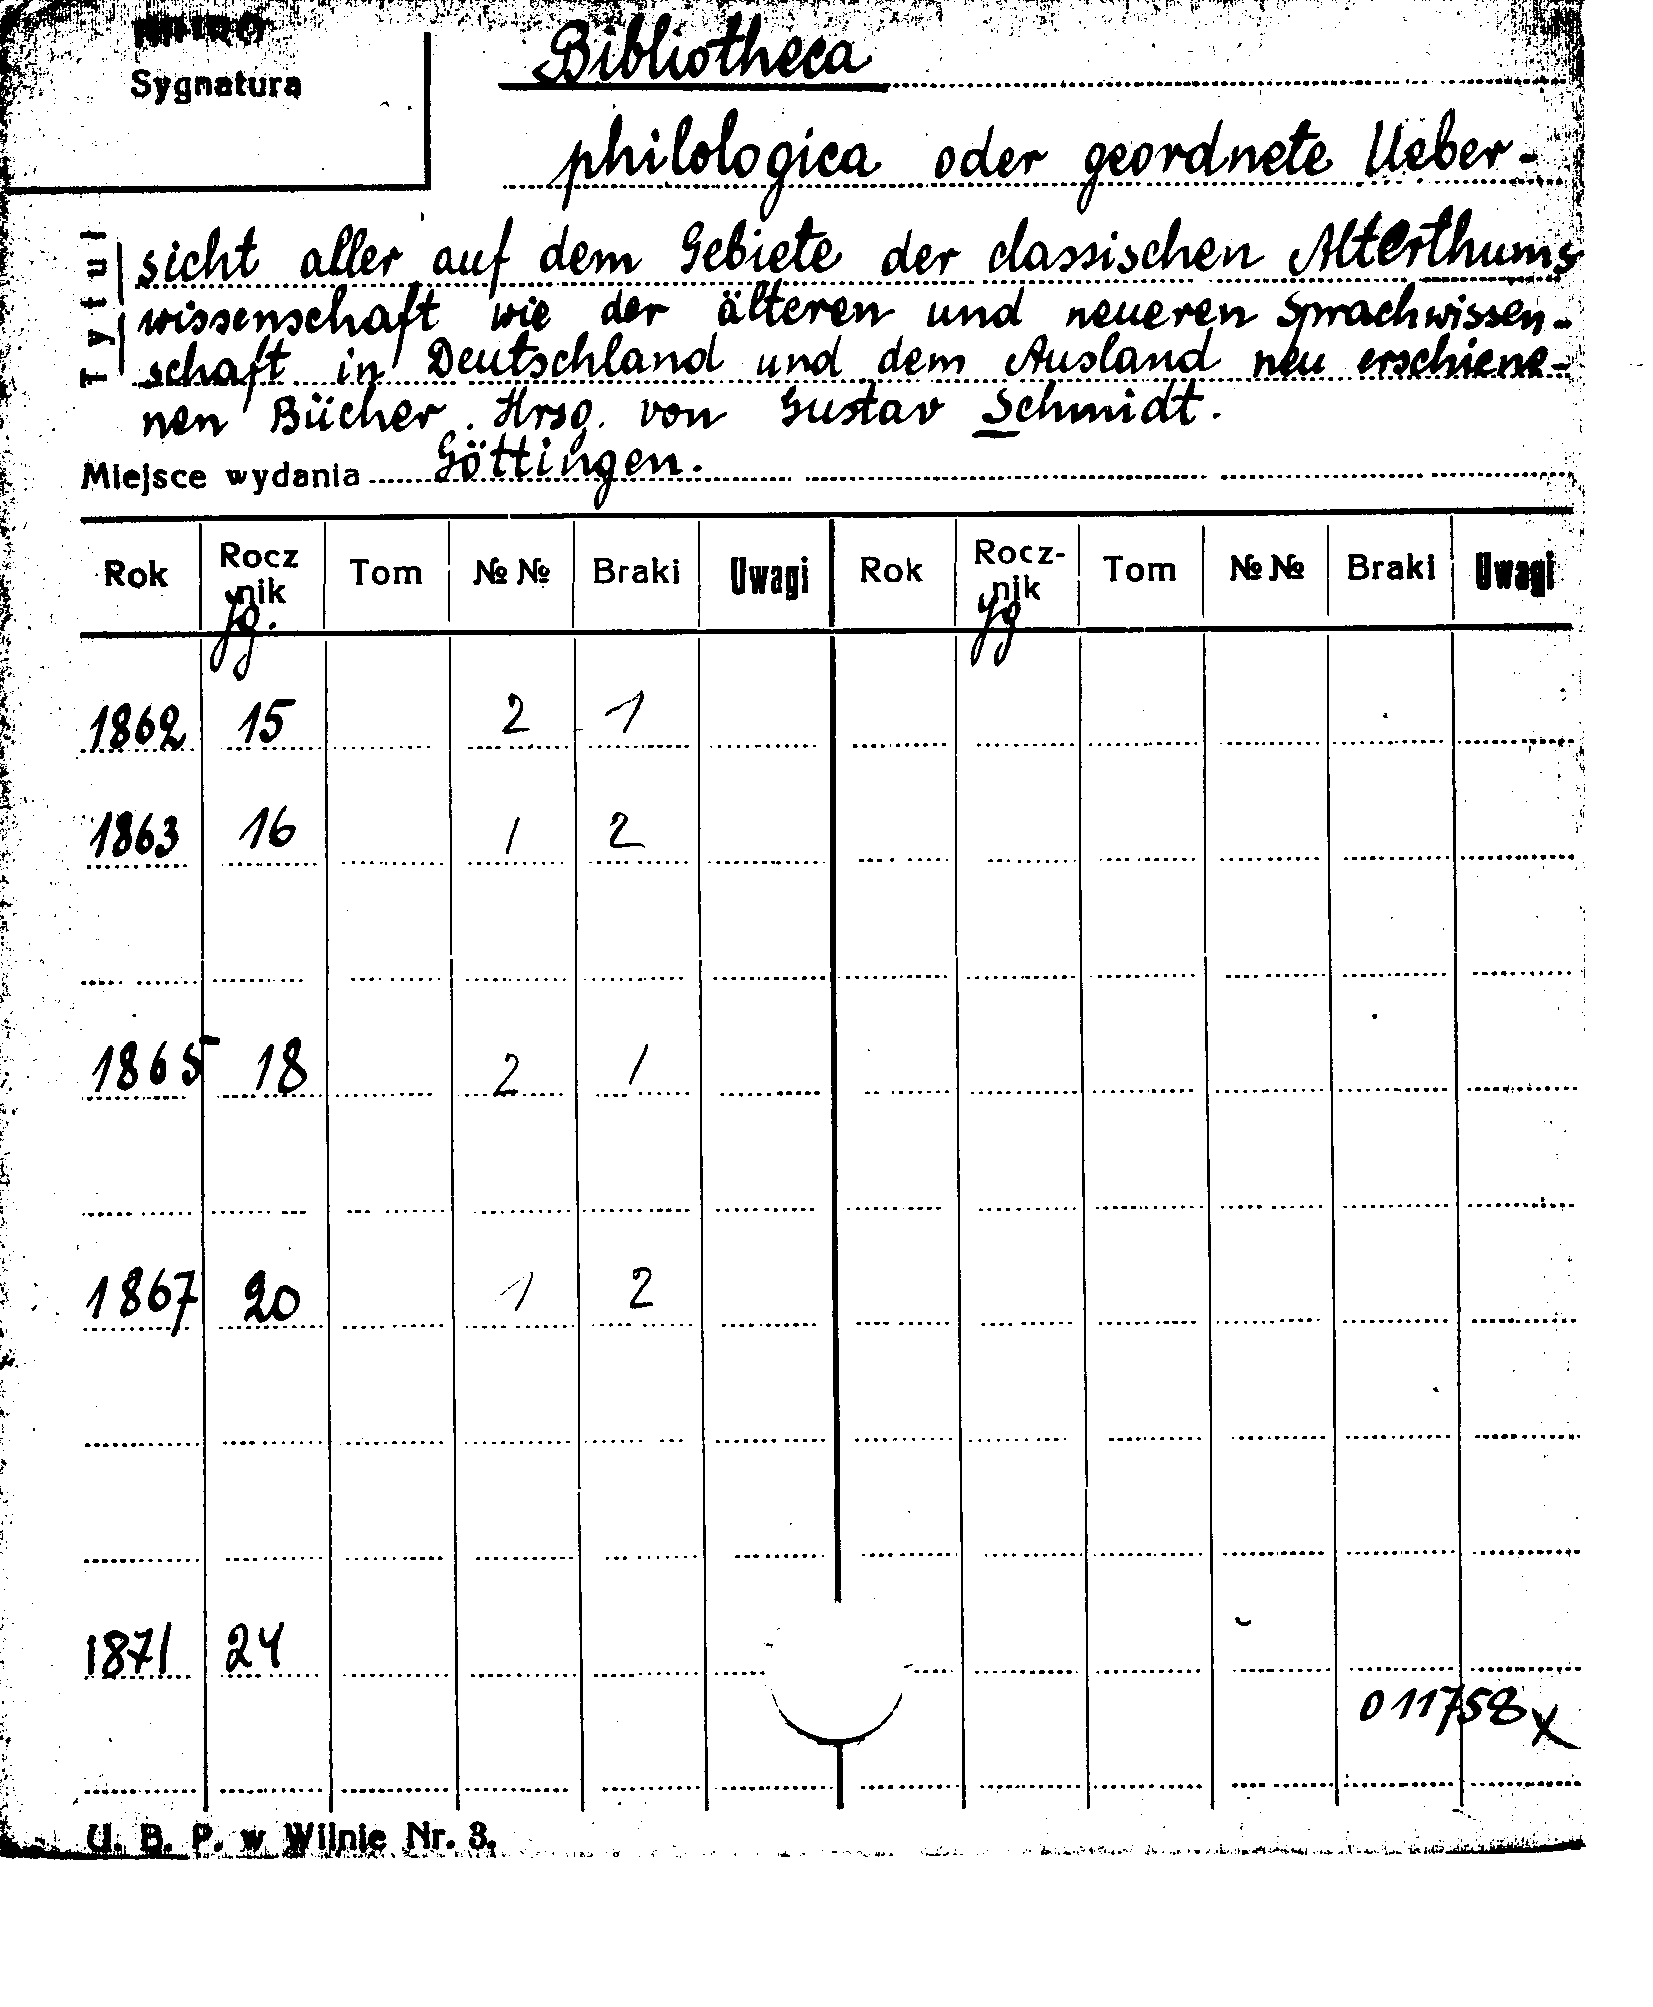 Sygnatura
Bibliotheca
philologica oder geordnete Ueber-
Tytuł
sicht aller auf dem Gebiete der classischen Alterthums
wissenschaft wie der älteren und neueren Sprachwissen-
schaft in Deutschland und dem Ausland neu erschiene-
nen Bücher. Hrsg. von Gustav Schmidt.
Miejsce wydania Göttingen.
Rok Rocznik Jg. Tom №№ Braki Uwagi Rok Rocz-nik Jg Tom №№ Braki Uwagi
1862 15 2 1
1863 16 1 2
1865 18 2 1
1867 20 1 2
1871 24
011758 x
U. B. P. w Wilnie Nr. 3.